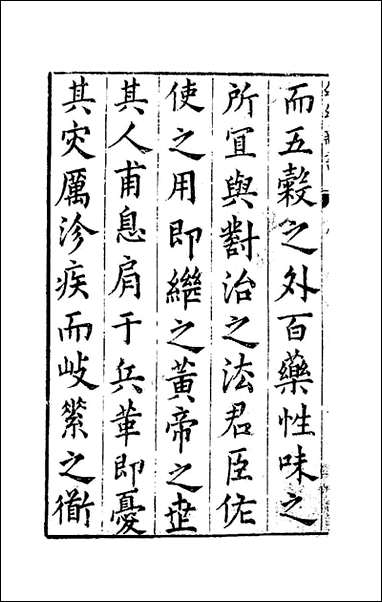 而五穀之外百藥性味之
所宜與對治之法君臣佐
使之用即繼之黃帝之世
其人甫息肩于兵革即憂
其灾厲沴疾而岐縈之衜